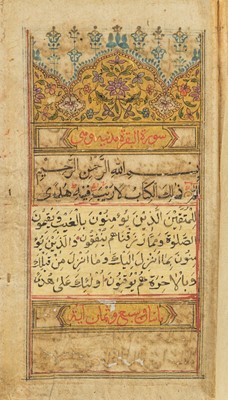 سورة البقرة مدنية وهي
بسم الله الرحمن الرحيم
الم ذلك الكتاب لا ريب فيه هدى
للمتقين الذين يؤمنون بالغيب ويقيمون
الصلوة ومما رزقناهم ينفقون والذين يؤ
منون بما انزل اليك وما انزل من قبلك
وبالاخرة هم يوقنون اولئك على هدى
مائتان وسبع وثمان اية